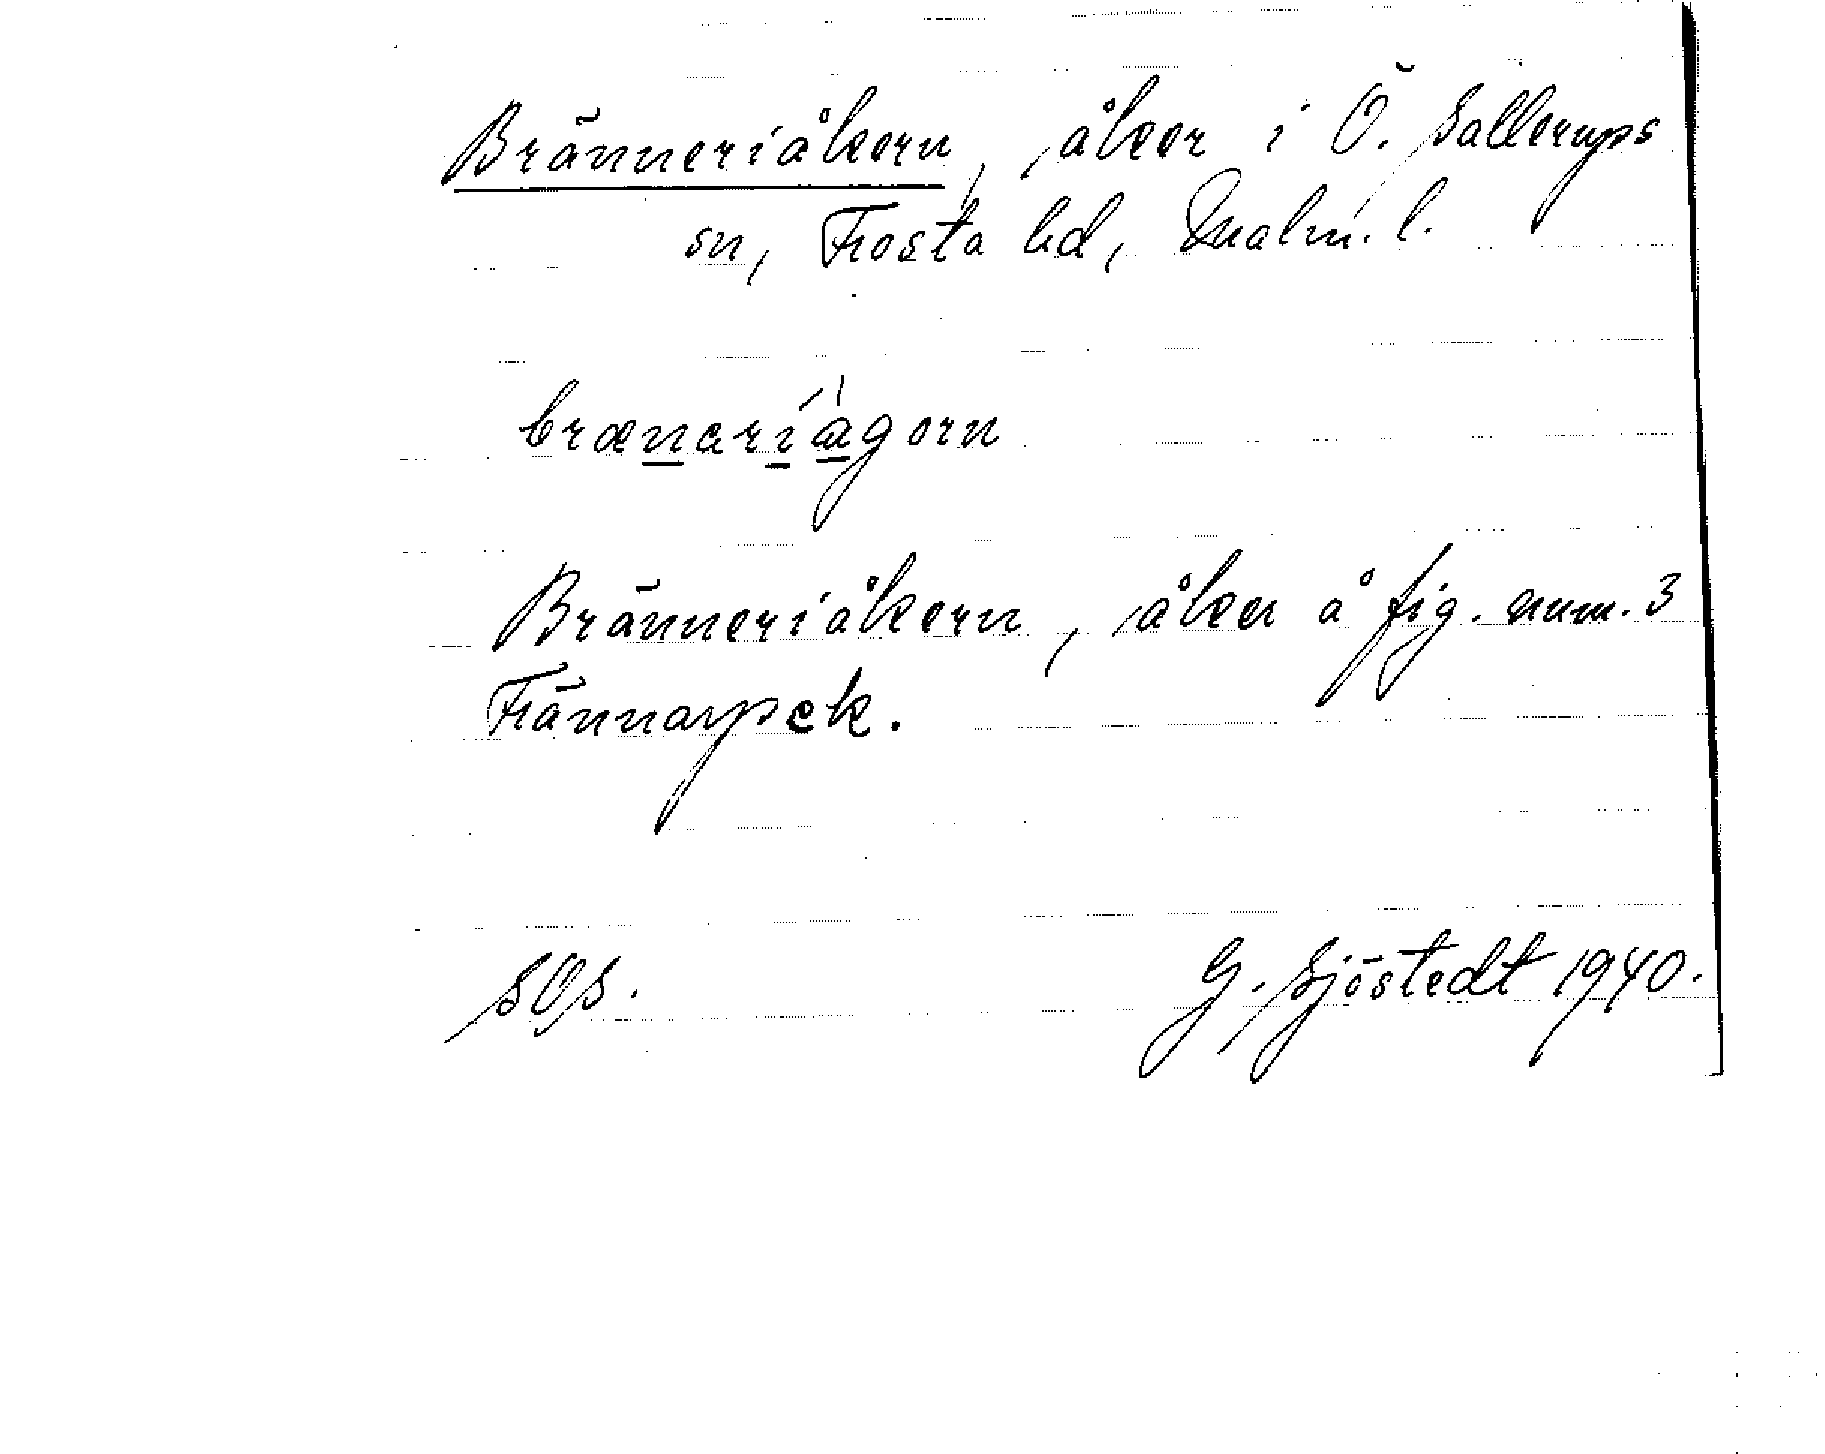 Bränneriåkern, åker i Ö. Sallerups
sn, Frosta hd, Malm. l.
brænariågorn
Bränneriåkern, åker å fig. num. 3
Frännarpsk.
SOS.
G. Sjöstedt 1940.